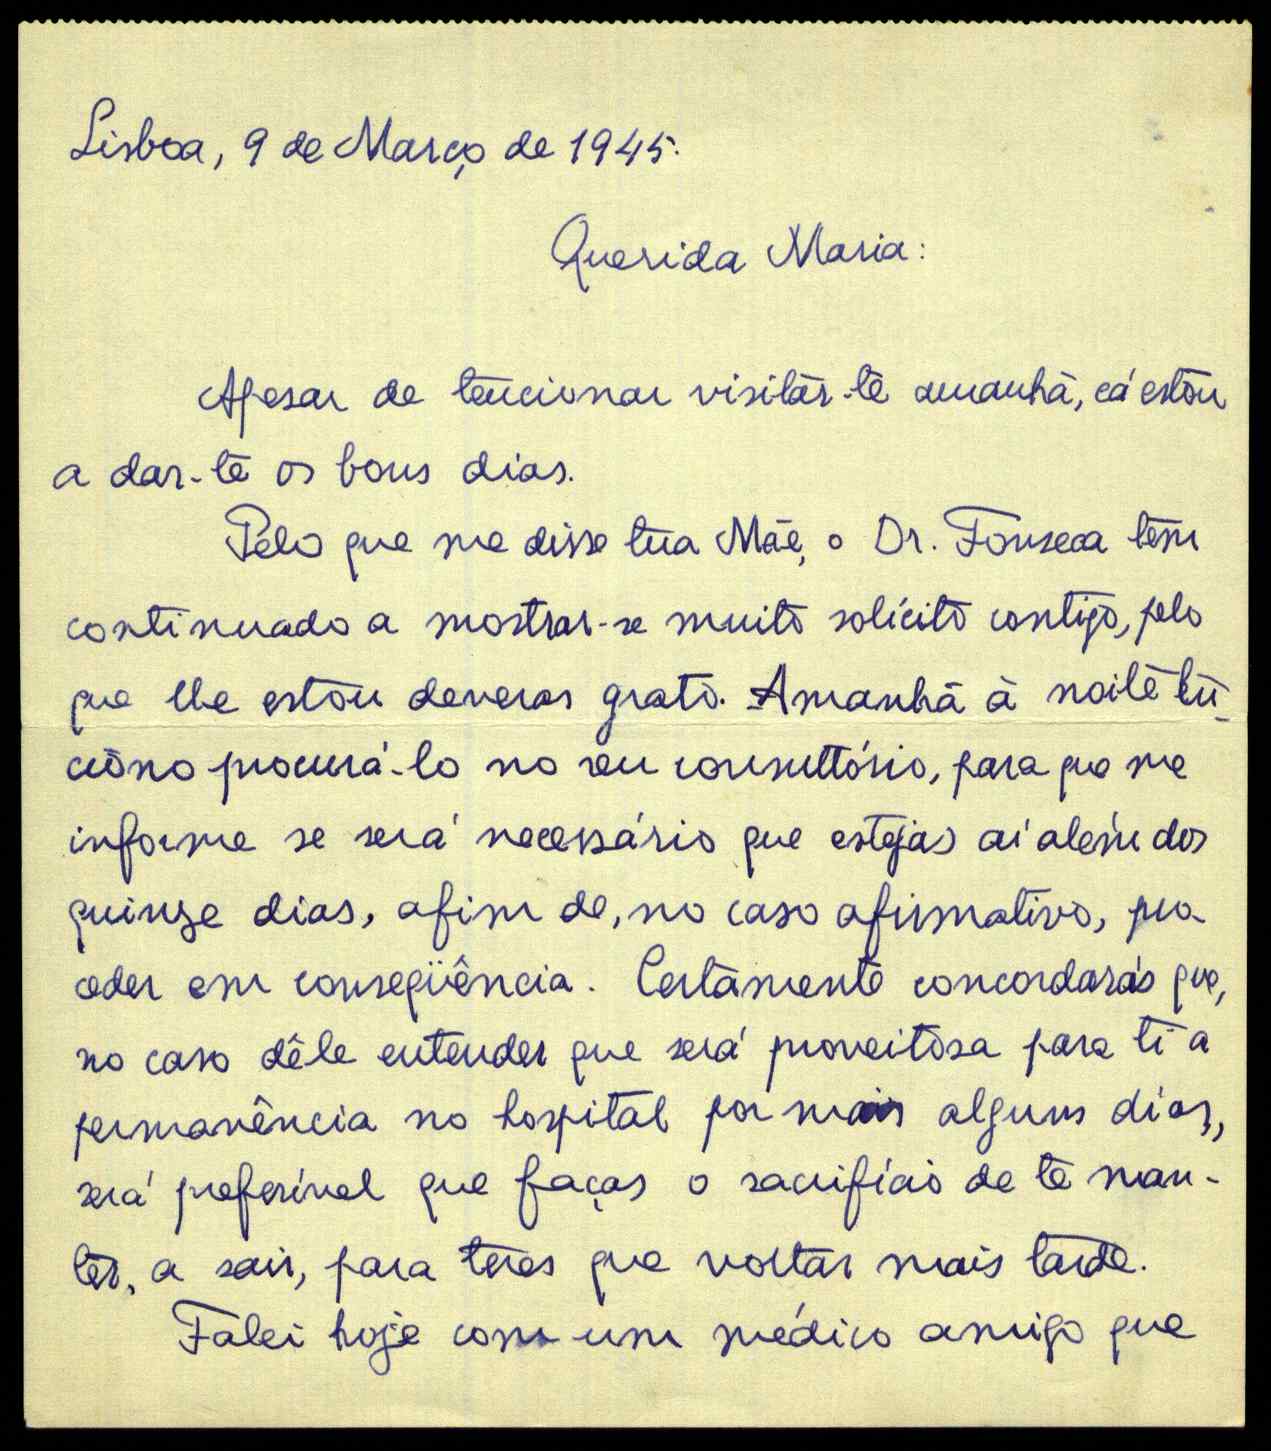 Lisboa, 9 de Março de 1945.
Querida Maria:
Apesar de tencionar visitar-te amanhã, cá estou
a dar-te os bons dias.
Pelo que me disse tua Mãe, o Dr. Fonseca tem
continuado a mostrar-se muito solícito contigo, pelo
que lhe estou deveras grato. Amanhã à noite ten-
ciono procurá-lo no seu consultório, para que me
informe se será necessário que estejas aí além dos
quinze dias, afim de, no caso afirmativo, pro-
ceder em conseqüência. Certamente concordarás que,
no caso dêle entender que será proveitosa para ti a
permanência no hospital por mais alguns dias,
será preferível que faças o sacrifício de te man-
ter, a sair, para teres que voltar mais tarde.
Falei hoje com um médico amigo que